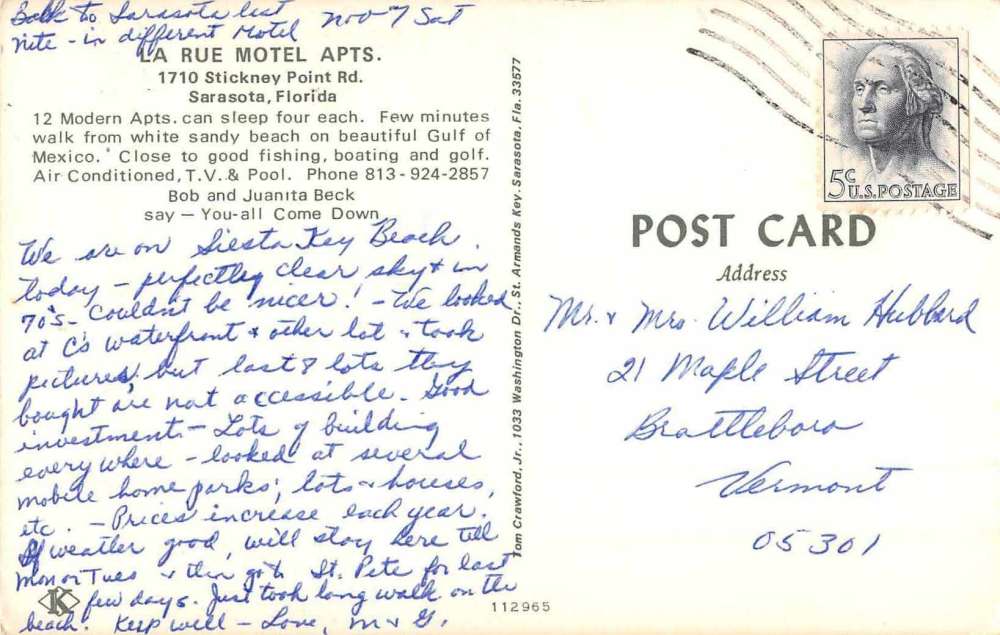 Back to Sarasota last Nov 7 Sat
nite - in different Motel
LA RUE MOTEL APTS.
1710 Stickney Point Rd.
Sarasota, Florida
12 Modern Apts. can sleep four each. Few minutes
walk from white sandy beach on beautiful Gulf of
Mexico. Close to good fishing, boating and golf.
Air Conditioned, T.V. & Pool. Phone 813-924-2857
Bob and Juanita Beck
say — You-all Come Down
We are on Siesta Key Beach.
today - perfectly clear sky & in
70's - Couldn't be nicer! - We looked
at C's waterfront & other lot & took
pictures, but last 8 lots they
bought are not accessible. Good
investment - Lots of building
everywhere - looked at several
mobile home parks; lots & houses,
etc. - Prices increase each year.
If weather good, will stay here till
Mon or Tues & then go to St. Pete for last
few days. Just took long walk on the
beach. Keep well - Love, M & G.
K
Tom Crawford, Jr., 1033 Washington Dr., St. Armands Key, Sarasota, Fla. 33577
112965
5c
U.S. POSTAGE
POST CARD
Address
Mr. & Mrs. William Hubbard
21 Maple Street
Brattleboro
Vermont
05301